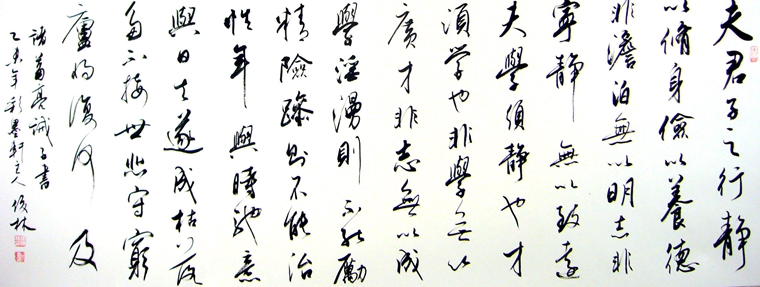 夫君子之行静
以脩身儉以養德
非澹泊無以明志非
寧静無以致遠
夫學須静也才
須学也非學無以
廣才非志無以成
學淫漫則不能勵
精險躁則不能治
性年與時馳意
與日去遂成枯落
多不接世悲守窮
廬將復何及
諸葛亮誡子書
乙年彩墨軒主人